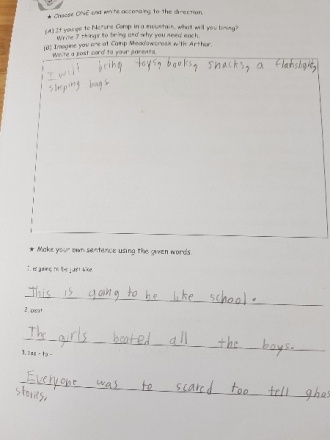 ★ Choose ONE and write according to the direction.
(A) If you go to Nature Camp in a mountain, what will you bring?
Write 7 things to bring and why you need each.
(B) Imagine you are at Camp Meadowcroak with Arthur.
Write a post card to your parents.
I will bring toys, books, snacks, a flahslight,
sleping bags
★ Make your own sentence using the given words.
1. is going to be just like
This is going to be like school.
2.
The girls booted all the boys.
3. too - to -
Everyone was to scared too tell ghos
stories,